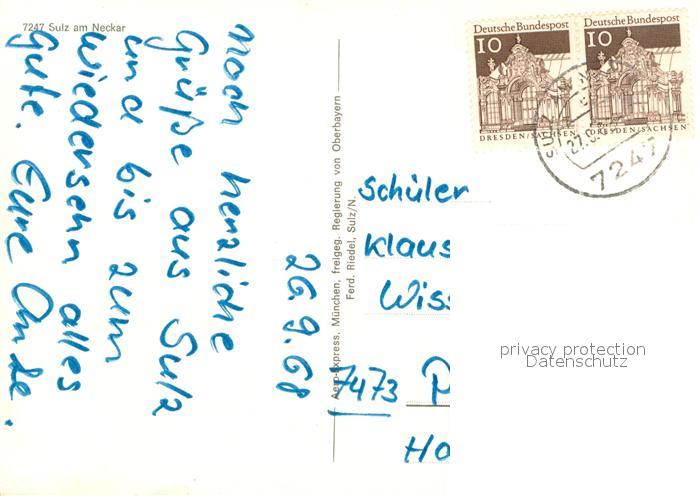 7247 Sulz am Neckar
Noch herzliche
Grüße aus Sulz
und bis zum
Wiedersehn alles
Gute. Eure
26.9.68
Aero-Express, München, freigeg. Regierung von Oberbayern
Ferd. Riedel, Sulz/N.
Deutsche Bundespost
10
DRESDEN/SACHSEN
Deutsche Bundespost
10
DRESDEN/SACHSEN
7247
Schüler
Klaus
7473
privacy protection
Datenschutz